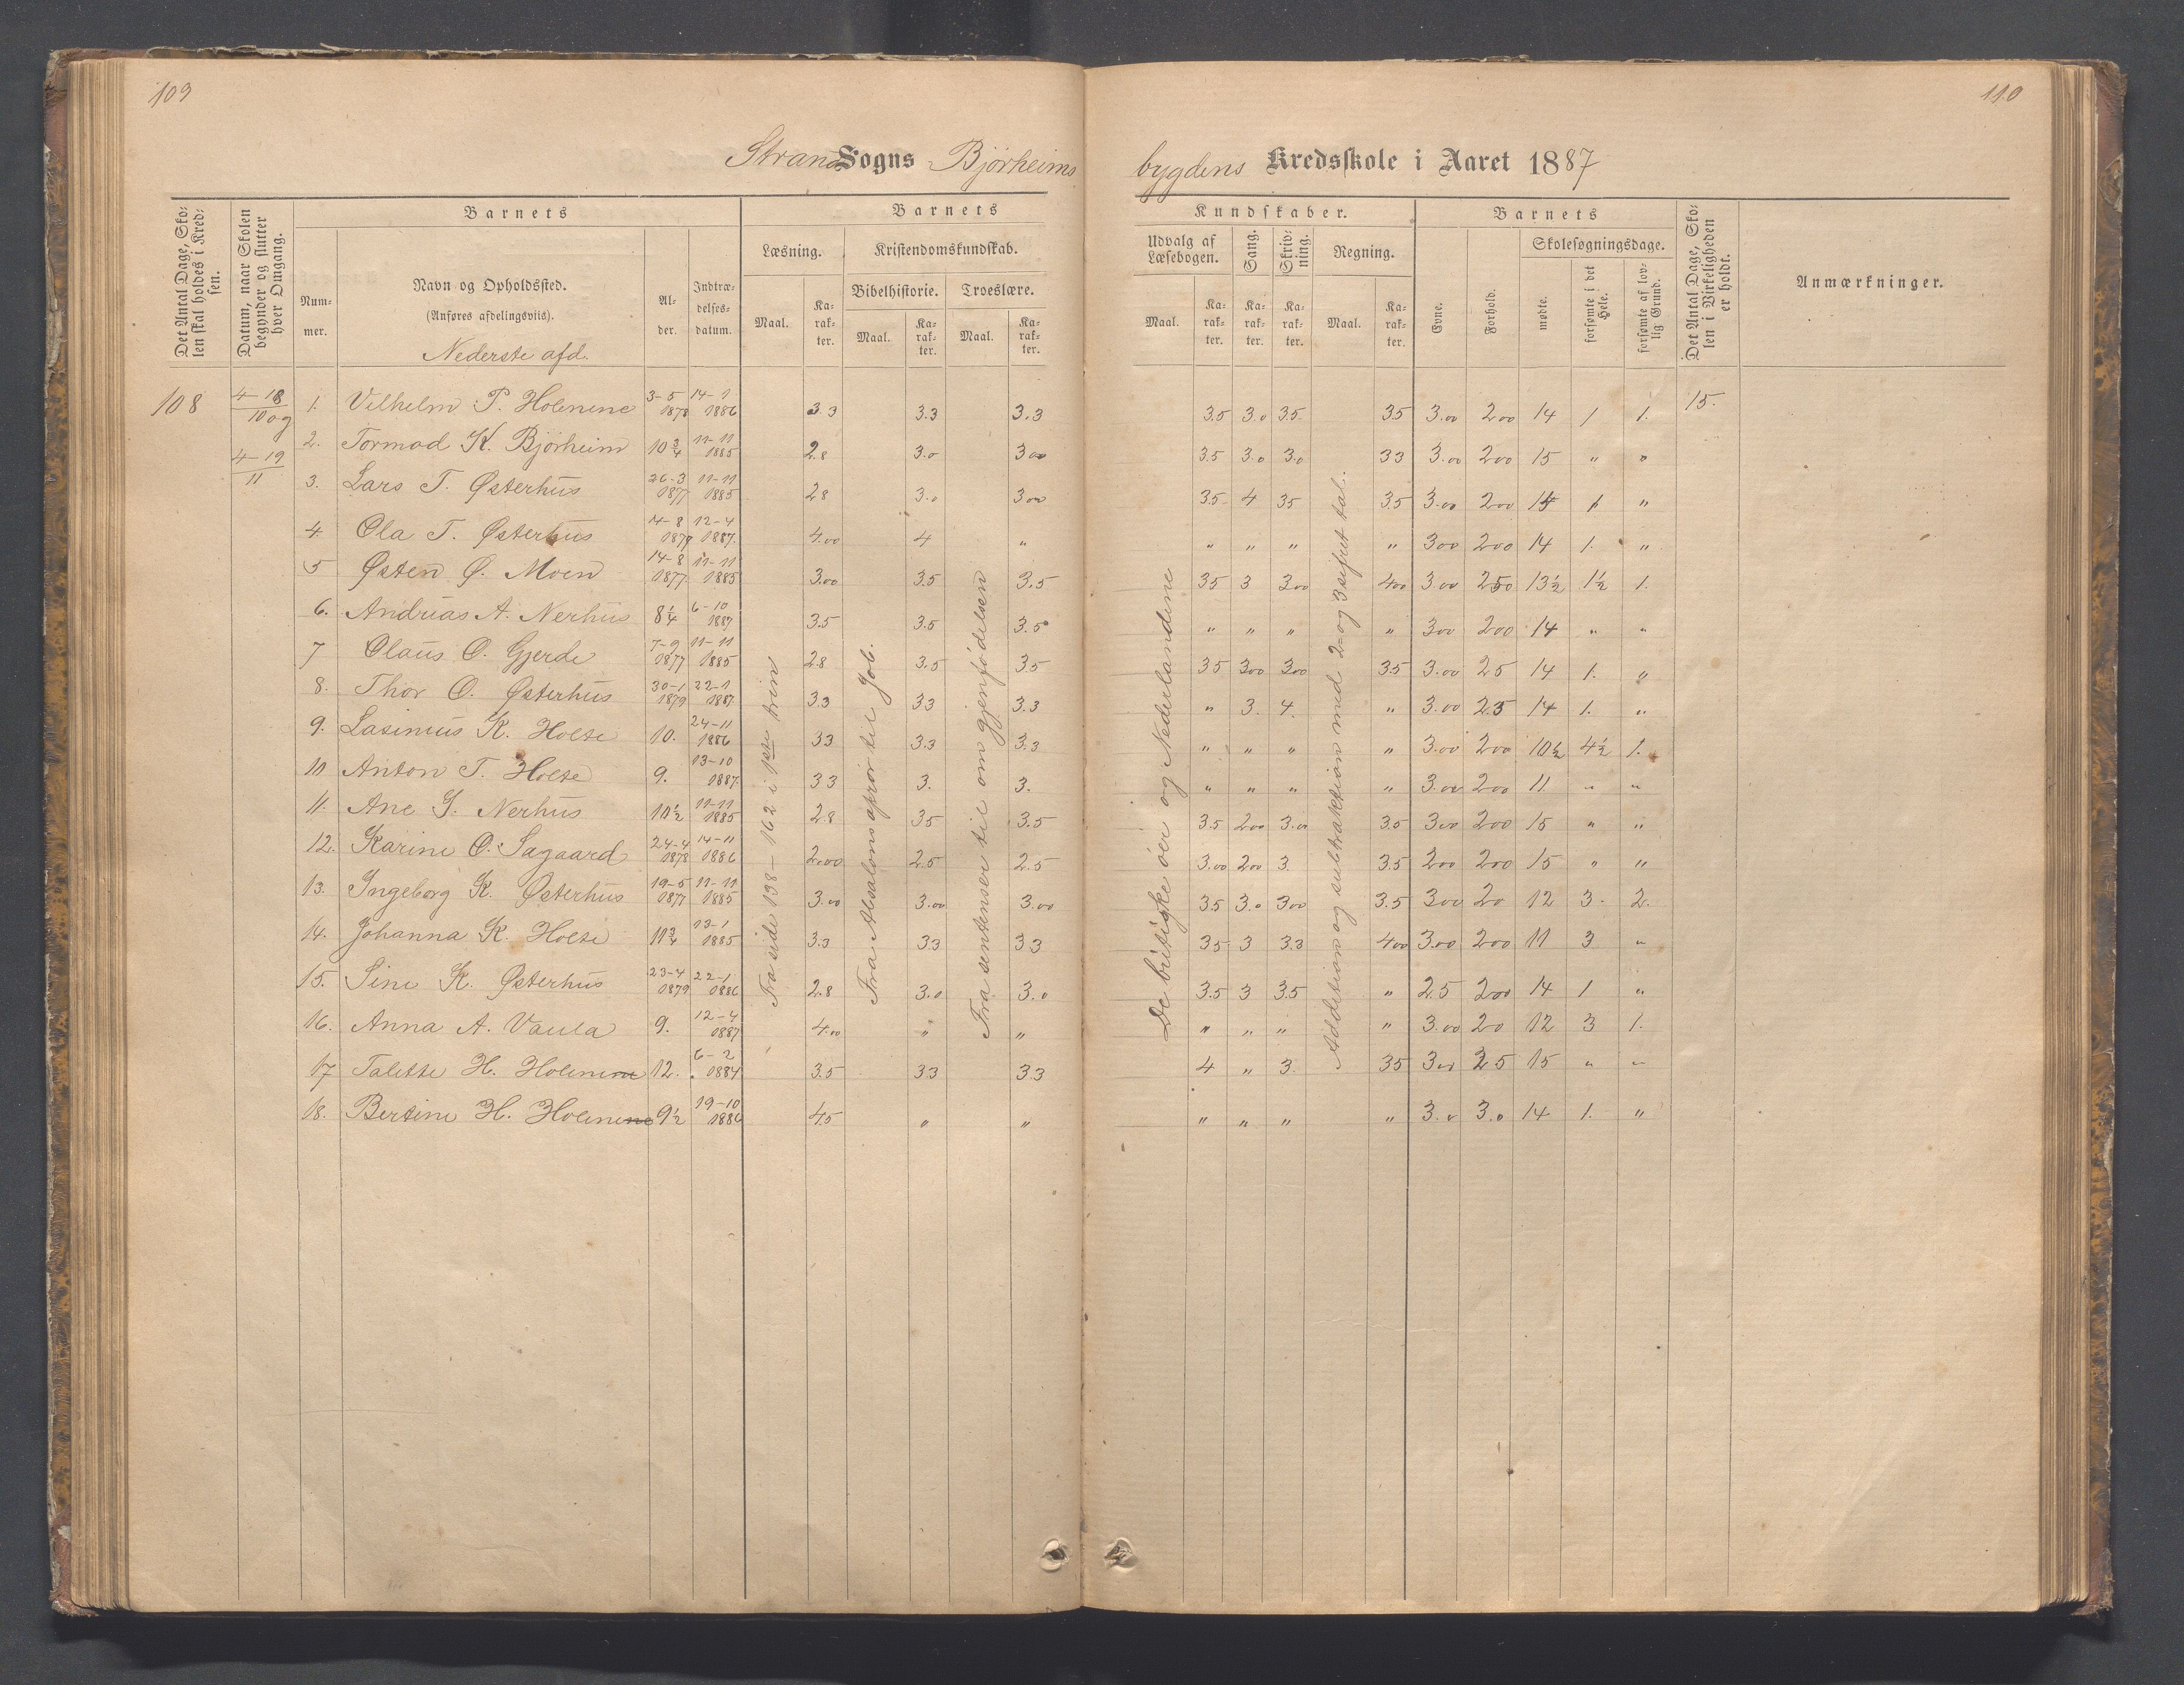 109
110
Strand Sogns Bjørheims
bygdens Kredsskole i Aaret 1887
Det Antal Dage, Sko-
len skal holdes i Kred-
sen.
Datum, naar Skolen
begynder og slutter
hver Omgang.
Barnets
Num-
mer.
Navn og Opholdssted.
(Anføres afdelingsviis).
Nederste afd.
Al-
der.
Indtræ-
delses-
datum.
Barnets
Læsning.
Maal.
Ka-
rak-
ter.
Kristendomskundskab.
Bibelhistorie.
Maal.
Ka-
rak-
ter.
Troeslære.
Maal.
Ka-
rak-
ter.
Kundskaber.
Udvalg af
Læsebogen.
Maal.
Ka-
rak-
ter.
Sang.
Ka-
rak-
ter.
Skriv-
ning.
Ka-
rak-
ter.
Regning.
Maal.
Ka-
rak-
ter.
Barnets
Evne.
Forhold.
Skolesøgningsdage.
mødte.
forsømte i det
Hele.
forsømte af lov-
lig Grund.
Det Antal Dage, Sko-
len i Virkeligheden
er holdt.
Anmærkninger.
108
4-18
10 og
4-19
11
1. Vilhelm P. Holmene 3-5 1878 14-1 1886 3.3 3.3 3.3 3.5 3.0 3.5 3.5 3.00 200 14 1 1. 15.
2. Tormod K. Bjørheim 10 3/4 11-11 1885 2.8 3.0 300 3.5 3.0 3.0 33 3.00 200 15 " "
3. Lars T. Østerhus 26-3 1877 11-11 1885 28 3.0 300 3.5 4 35 3.5 3.00 200 14 1 "
4. Ola T. Østerhus 14-8 1879 12-4 1887. 4.00 4 " " " " " 300 200 14 1. "
5 Østen Ø. Moen 14-8 1877 11-11 1885 3.00 3.5 3.5 35 3 300 400 3.00 250 13½ 1½ 1.
6. Andrias A. Nerhus 8¼ 6-10 1887 3.5 3.5 3.5 " " " " 300 200 14 " "
7 Olaus O. Gjerde 7-9 1877 11-11 1885 28 3.5 35 35 300 300 3.5 3.00 25 14 1. "
8. Thor O. Østerhus 30-1 1879 22-1 1887. 3.3 33 3.3 " 3. 4. " 3.00 25 14 1. "
9. Lasimus K. Holte 10. 24-11 1886 33 3.3 3.3 " " " " 3.00 200 10½ 4½ 1.
10 Anton T. Holte 9. 13-10 1887. 33 3. 3. " " " " 3.00 200 11 " "
11. Ane G. Nerhus 10½ 11-11 1885 2.8 35 3.5 3.5 200 3.00 3.5 300 200 15 " "
12. Karine O. Sagaard 24-4 1878 14-11 1886 2.00 2.5 2.5 3.00 200 3. 3.5 200 200 15 " "
13. Ingeborg K. Østerhus 19-5 1877 11-11 1885 3.00 3.00 3.00 3.5 3.0 300 3.5 300 20 12 3. 2.
14. Johanna K. Holte 11¾ 13-1 1885 3.3 33 33 35 3 3.3 400 3.00 200 11 3 "
15. Sine K. Østerhus 23-4 1879 22-1 1886 2.8 3.0 3.0 3.5 3 3.5 " 25 200 14 1 "
16. Anna A. Vaula 9. 12-4 1887 4.00 " " " " " " 3.00 20 12 3 1.
17 Talette H. Holmene 12. 6-2 1884 3.5 33 3.3 4 " 3. 35 300 25 15 " "
18. Bertine H. Holmene 9½ 19-10 1886 4.5 " " " " " " 3.0 3.0 14 1. "
Fra side 138-162 i 1ste trin
Fra Absalons oprør til Job.
Fra sentenser til om gjenfødelsen
De britiske øer og Nederlandene
Addition og subtraktion med 2- og 3 sifret tal.